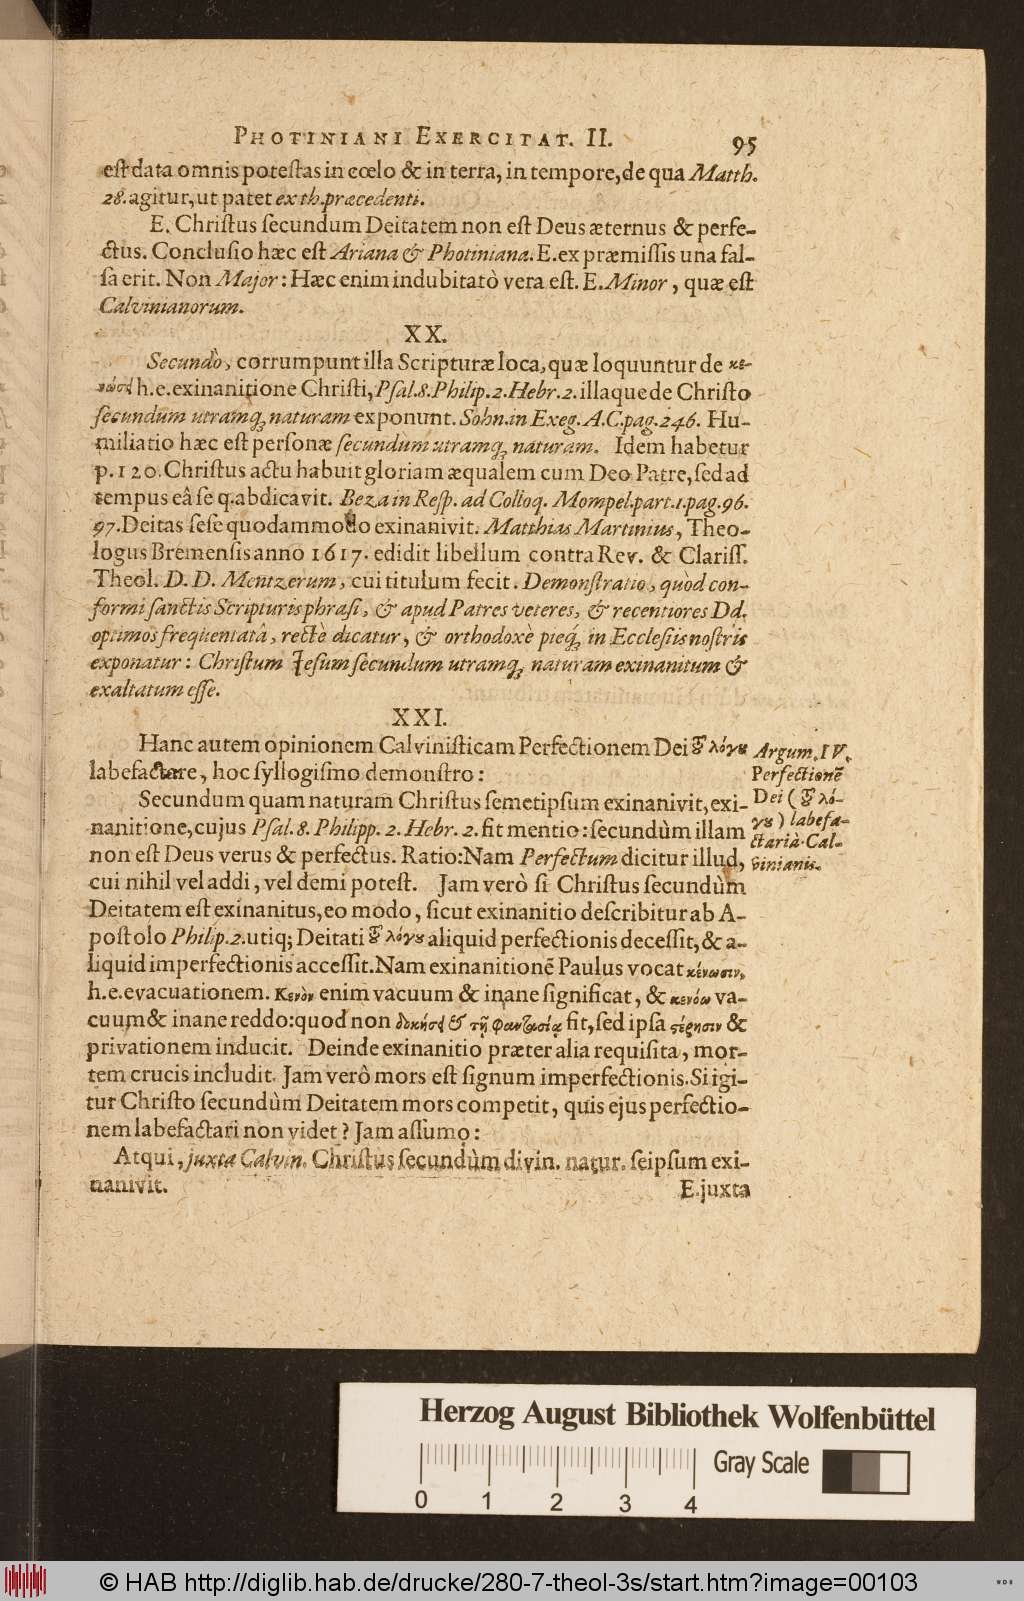 PHOTINIANI EXERCITAT. II. 95
est data omnis potestas in cœlo & in terra, in tempore, de qua Matth.
28. agitur, ut patet ex th. præcedenti.
E. Christus secundum Deitatem non est Deus æternus & perfe-
ctus. Conclusio hæc est Ariana & Photiniana. E. ex præmissis una fal-
sa erit. Non Major: Hæc enim indubitatò vera est. E. Minor, quæ est
Calvinianorum.
XX.
Secundò, corrumpunt illa Scripturæ loca, quæ loquuntur de κε-
νώσει h. e. exinanitione Christi, Psal. 8. Philip. 2. Hebr. 2. illaque de Christo
secundum utramq; naturam exponunt. Sohn. in Exeg. A. C. pag. 246. Hu-
miliatio hæc est personæ secundum utramq; naturam. Idem habetur
p. 120. Christus actu habuit gloriam æqualem cum Deo Patre, sed ad
tempus eâ se q. abdicavit. Beza in Resp. ad Colloq. Mompel. part. 1. pag. 96.
97. Deitas sese quodammodo exinanivit. Matthias Martinius, Theo-
logus Bremensis anno 1617. edidit libellum contra Rev. & Clariss.
Theol. D. D. Mentzerum, cui titulum fecit. Demonstratio, quod con-
formi sanctis Scripturis phrasi, & apud Patres veteres, & recentiores Dd.
optimos frequentatâ, rectè dicatur, & orthodoxè pieq; in Ecclesiis nostris
exponatur: Christum Jesum secundum utramq; naturam exinanitum &
exaltatum esse.
XXI.
Hanc autem opinionem Calvinisticam Perfectionem Dei τοῦ λόγου
labefactare, hoc syllogismo demonstro:
Argum. IV.
Perfectionē
Dei (τοῦ λό-
γου) labefa-
ctaria Cal-
vinianis.
Secundum quam naturam Christus semetipsum exinanivit, exi-
nanitione, cujus Psal. 8. Philipp. 2. Hebr. 2. fit mentio: secundùm illam
non est Deus verus & perfectus. Ratio: Nam Perfectum dicitur illud,
cui nihil vel addi, vel demi potest. Jam verò si Christus secundùm
Deitatem est exinanitus, eo modo, sicut exinanitio describitur ab A-
postolo Philip. 2. utiq; Deitati τοῦ λόγου aliquid perfectionis decessit, & a-
liquid imperfectionis accessit. Nam exinanitionē Paulus vocat κένωσιν,
h. e. evacuationem. Κενὸν enim vacuum & inane significat, & κενόω va-
cuum & inane reddo: quod non δοκήσει & τῇ φαντασίᾳ fit, sed ipsa στέρησιν &
privationem inducit. Deinde exinanitio præter alia requisita, mor-
tem crucis includit. Jam verò mors est signum imperfectionis. Si igi-
tur Christo secundùm Deitatem mors competit, quis ejus perfectio-
nem labefactari non videt? Jam assumo:
Atqui, juxta Calvin. Christus secundùm divin. natur. seipsum exi-
nanivit.
E. juxta
Herzog August Bibliothek Wolfenbüttel
0 1 2 3 4
Gray Scale
© HAB http://diglib.hab.de/drucke/280-7-theol-3s/start.htm?image=00103